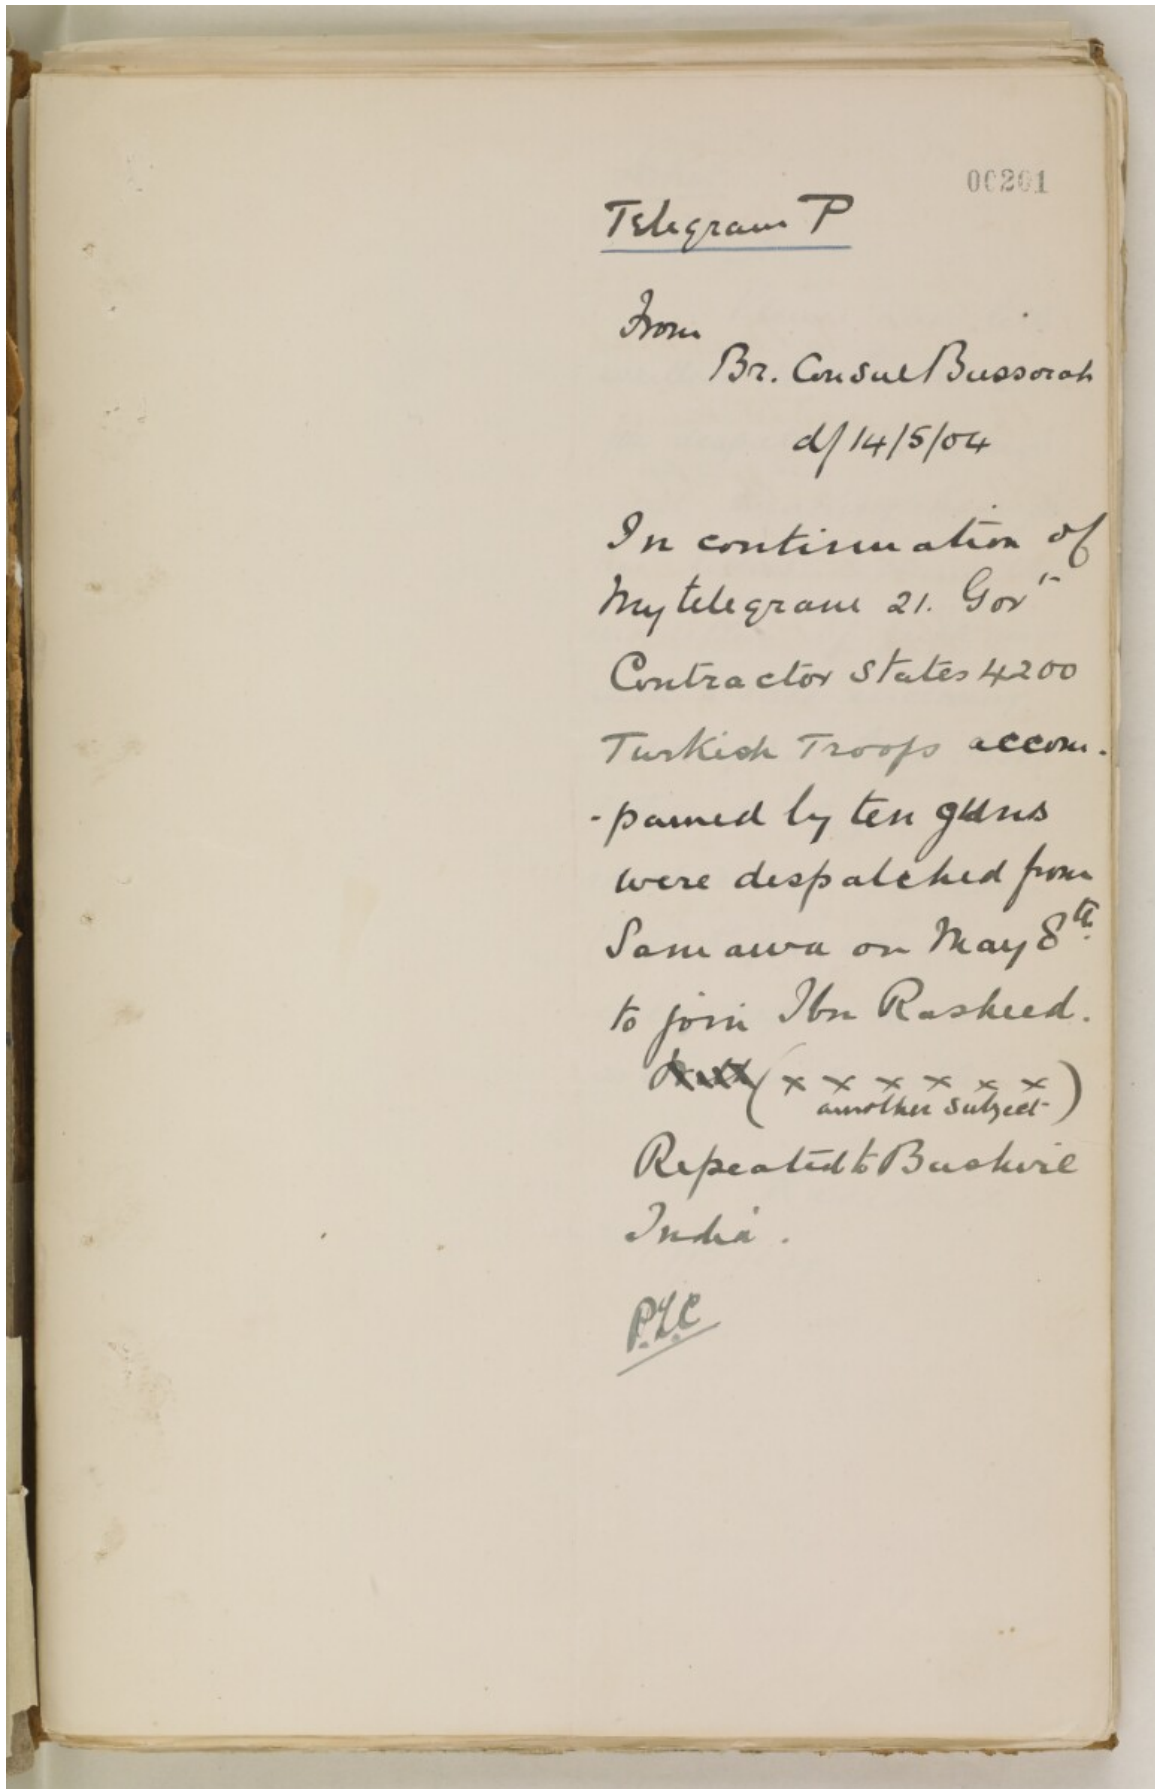 00201
Telegram P
From
Br. Consul Bussorah
d/14/5/04
In continuation of
My telegram 21. Govt
Contractor States 4200
Turkish Troops accom-
-panied by ten guns
were despatched from
Samawa on May 8th.
to join Ibn Rasheed.
(x x x x x x)
another subject
Repeated to Bushire
India.